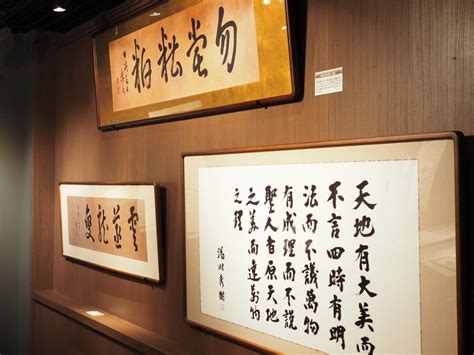 勿嘗糟粕
天地有大美而
不言四時有明
法而不議萬物
有成理而不説
聖人者原天地
之美而達萬物
之理
湯川秀樹
雲蒸龍變